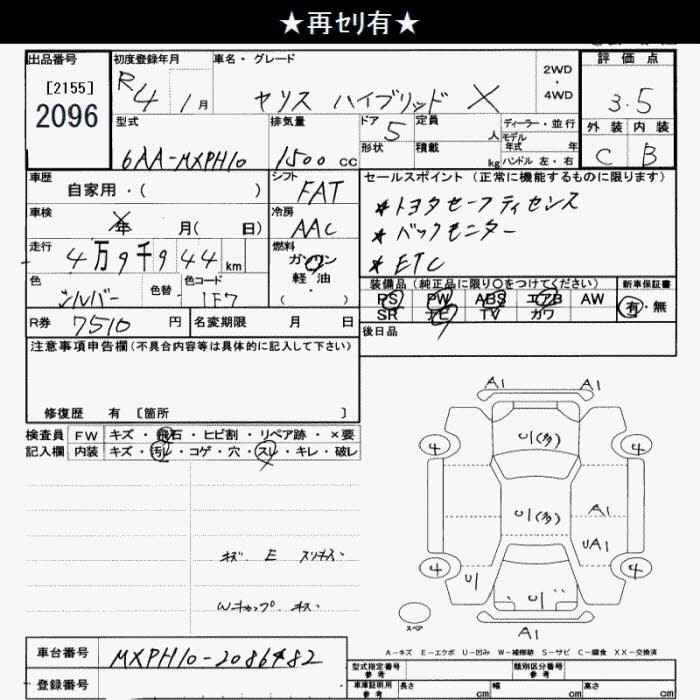 ★再ｾﾘ有★
出品番号 初度登録年月 車名・グレード 2WD・4WD 評価点
[2155]
2096
R4 1月 ヤリス ハイブリッド X 3.5
型式 排気量 ドア 5 定員 人 ディーラー・並行 外装 内装
モデル年式 年
形状 積載 kg ハンドル 左・右
6AA-MXPH10 1500 cc C B
車歴 自家用・( ) シフト FAT セールスポイント(正常に機能するものに限ります)
★トヨタセーフティセンス
車検 年 月( 日) 冷房 AAC ★バックモニター
走行 4万9千944km 燃料 ガソリン 軽・油 ・( ) ★ETC
色 シルバー 色替 色コード 1F7
装備品(純正品に限り○をつけてください) 新車保証書
PS PW ABS エアB AW 有・無
SR ナビ TV カワ
R券 7510 円 名変期限 月 日 後日品
注意事項申告欄(不具合内容等は具体的に記入して下さい)
修復歴 有 〔箇所 〕
検査員 FW キズ・飛石・ヒビ割・リペア跡・×要
記入欄 内装 キズ・汚レ・コゲ・穴・スレ・キレ・破レ
A1 A1
4 U1(多) 4
U1(多) A1
UA1
4 U1 U1 4
A1
スペア
キズ E スリキズ
Wキャップ キズ
A－キズ E－エクボ U－凹み W－補修跡 S－サビ C－腐食 XX－交換済
車台番号 MXPH10-2086482
型式指定番号 参考 類別区分番号 参考
登録番号 車庫証明用 参考 長さ cm 幅 cm 高さ cm